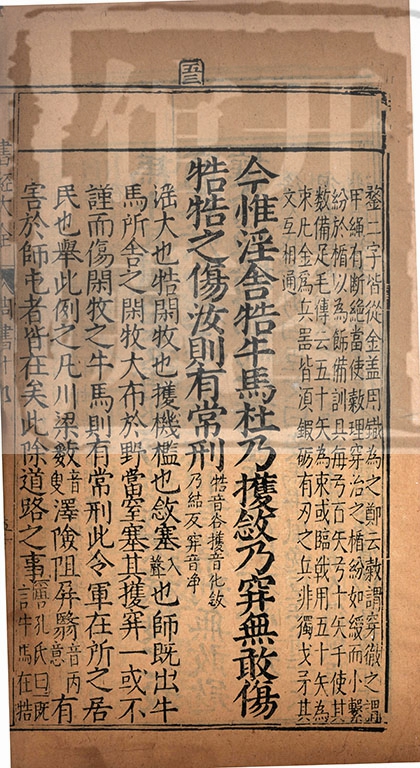 五三
鍪二字皆從金盖用鐵為之鄭云敹謂穿徹之謂
甲繩有斷絶當使敹理穿治之楯紛如綬而小繫
紛於楯以為飾備訓具每弓百矢弓十矢千使其
數備足毛傳云五十矢為束或臨戰用五十矢為
束凡金為兵器皆須鍛砺有刃之兵非獨戈矛其
文互相通
今惟淫舍牿牛馬杜乃擭敜乃穽無敢傷
牿牿之傷汝則有常刑
牿音谷擭音化敜
乃結反穽音净
淫大也牿閑牧也擭機檻也敜塞入聲也師既出牛
馬所舍之閑牧大布於野當窒塞其擭穽一或不
謹而傷閑牧之牛馬則有常刑此令軍在所之居
民也舉此例之凡川梁數音叟澤險阻屏翳音丙意有
害於師屯者皆在矣此除道路之事
孔氏曰既
言牛馬在牿
書經大全